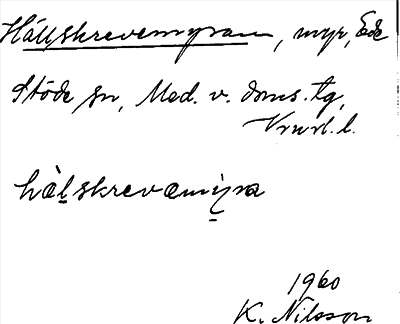 Hällskrevemyran, myr, Ede
Stöde sn, Med. v. doms. tg,
Vnrl. l.
hàl̠skrevæmy̠ra
1960
K. Nilsson